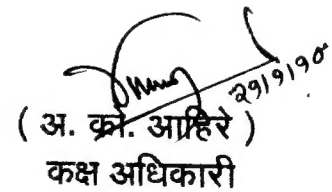 २१/९/१०
( अ. को. आहिरे )
कक्ष अधिकारी